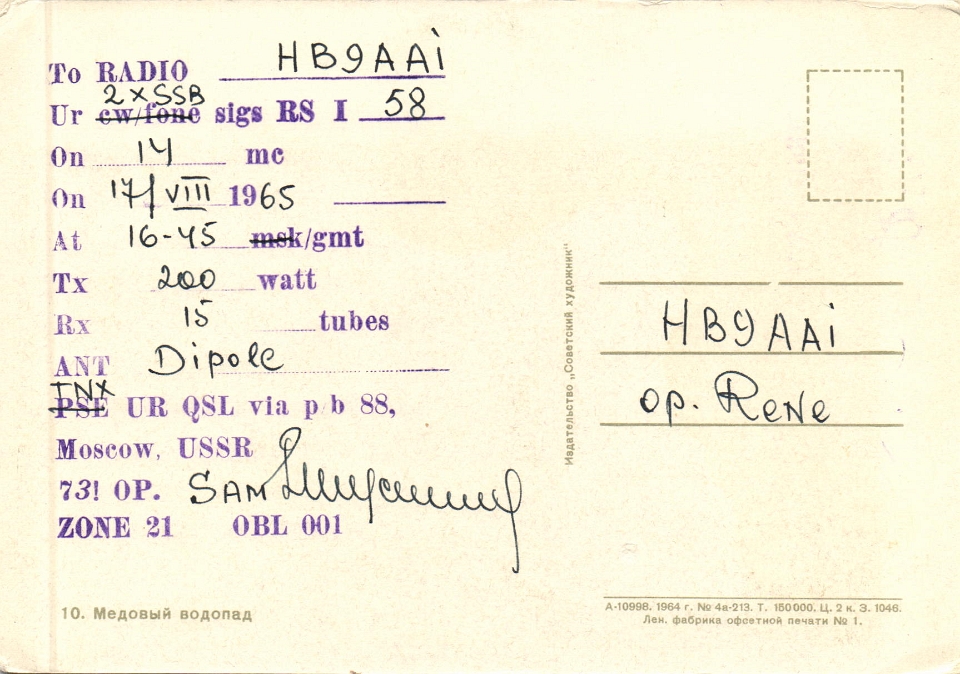 To RADIO HB9AAi
2 x SSB
Ur cw/fone sigs RS I 58
On 14 mc
On 17/VIII 1965
At 16-45 msk/gmt
Tx 200 watt
Rx 15 tubes
ANT Dipole
TNX
PSE UR QSL via p/b 88,
Moscow, USSR
73! OP. SAM
ZONE 21 OBL 001
10. Медовый водопад
Издательство „Советский художник"
HB9AAi
op. ReNe
А-10998. 1964 г. № 4а-213. Т. 150000. Ц. 2 к. З. 1046.
Лен. фабрика офсетной печати № 1.